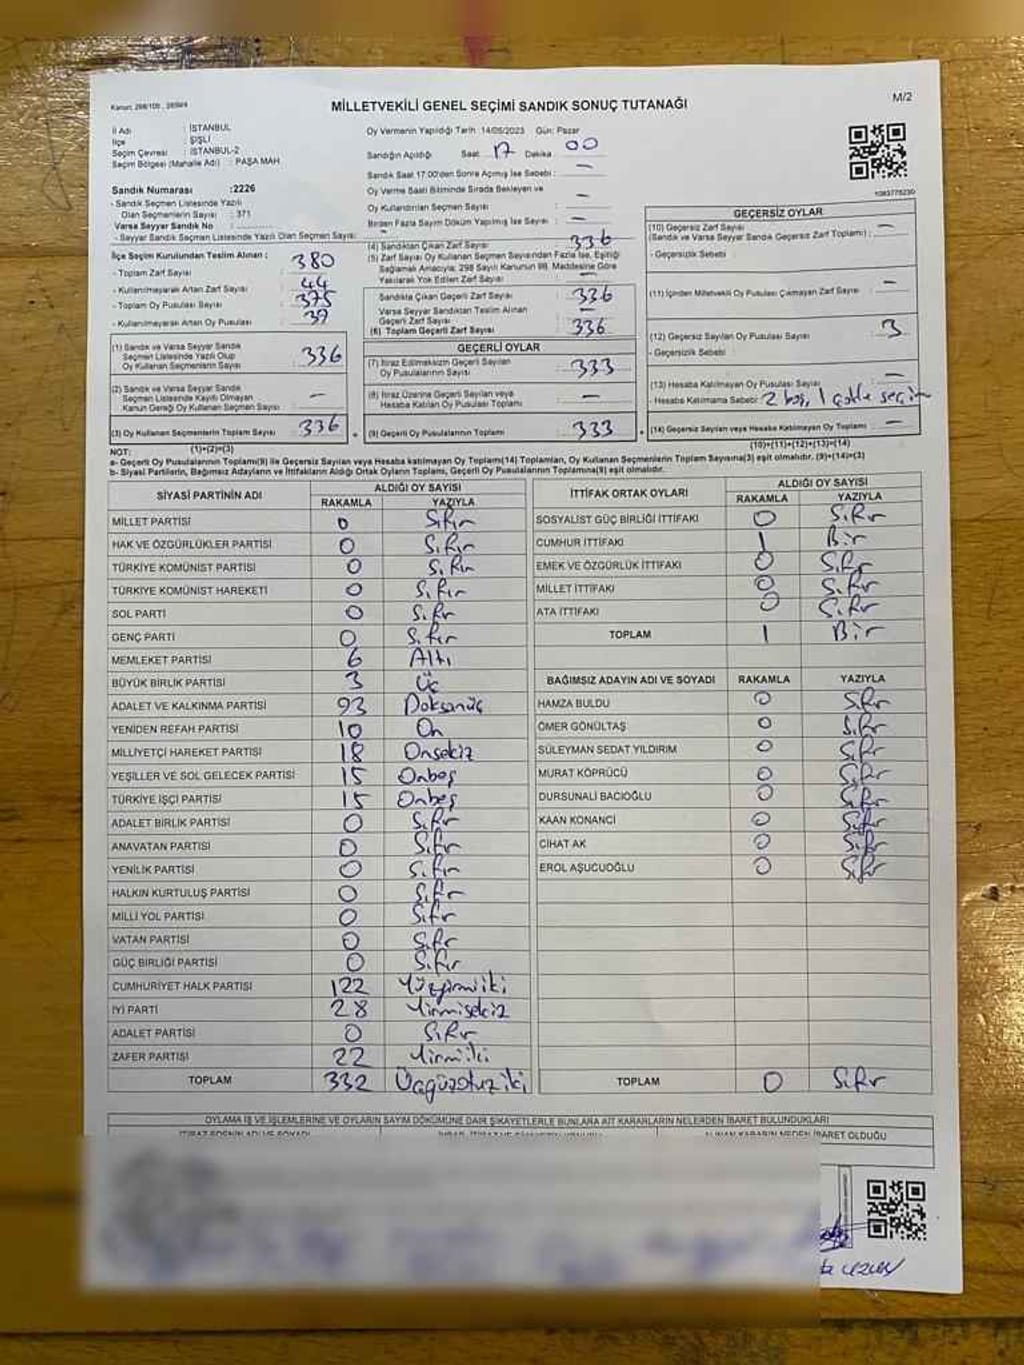 Kanun: 298/105 , 2839/4
M/2
MİLLETVEKİLİ GENEL SEÇİMİ SANDIK SONUÇ TUTANAĞI
İl Adı : İSTANBUL
İlçe : ŞİŞLİ
Seçim Çevresi : İSTANBUL-2
Seçim Bölgesi (Mahalle Adı) : PAŞA MAH
Sandık Numarası :2226
- Sandık Seçmen Listesinde Yazılı
Olan Seçmenlerin Sayısı : 371
Varsa Seyyar Sandık No :
- Seyyar Sandık Seçmen Listesinde Yazılı Olan Seçmen Sayısı:
İlçe Seçim Kurulundan Teslim Alınan ;
- Toplam Zarf Sayısı 380
- Kullanılmayarak Artan Zarf Sayısı 44
- Toplam Oy Pusulası Sayısı 375
- Kullanılmayarak Artan Oy Pusulası 39
(1) Sandık ve Varsa Seyyar Sandık
Seçmen Listesinde Yazılı Olup
Oy Kullanan Seçmenlerin Sayısı 336
(2) Sandık ve Varsa Seyyar Sandık
Seçmen Listesinde Kaydı Olmayan
Kanun Gereği Oy Kullanan Seçmen Sayısı -
(3) Oy Kullanan Seçmenlerin Toplam Sayısı 336
Oy Vermenin Yapıldığı Tarih 14/05/2023 Gün: Pazar
Sandığın Açıldığı Saat 17 Dakika 00
Sandık Saat 17:00'den Sonra Açılmış İse Sebebi : -
Oy Verme Saati Bitiminde Sırada Bekleyen ve
Oy Kullandırılan Seçmen Sayısı : -
Birden Fazla Sayım Döküm Yapılmış İse Sayısı : -
(4) Sandıktan Çıkan Zarf Sayısı 336
(5) Zarf Sayısı Oy Kullanan Seçmen Sayısından Fazla İse, Eşitliği
Sağlamak Amacıyla; 298 Sayılı Kanunun 98. Maddesine Göre
Yakılarak Yok Edilen Zarf Sayısı -
Sandıkta Çıkan Geçerli Zarf Sayısı 336
Varsa Seyyar Sandıktan Teslim Alınan
Geçerli Zarf Sayısı -
(6) Toplam Geçerli Zarf Sayısı 336
GEÇERLİ OYLAR
(7) İtiraz Edilmeksizin Geçerli Sayılan
Oy Pusulalarının Sayısı 333
(8) İtiraz Üzerine Geçerli Sayılan veya
Hesaba Katılan Oy Pusulaları Toplamı -
(9) Geçerli Oy Pusulalarının Toplamı 333
1083775230
GEÇERSİZ OYLAR
(10) Geçersiz Zarf Sayısı
(Sandık ve Varsa Seyyar Sandık Geçersiz Zarf Toplamı) : -
- Geçersizlik Sebebi :
(11) İçinden Milletvekili Oy Pusulası Çıkmayan Zarf Sayısı -
(12) Geçersiz Sayılan Oy Pusulası Sayısı 3
- Geçersizlik Sebebi :
(13) Hesaba Katılmayan Oy Pusulası Sayısı -
- Hesaba Katılmama Sebebi: 2 boş, 1 çoklu seçim
(14) Geçersiz Sayılan veya Hesaba Katılmayan Oy Toplamı -
NOT: (1)+(2)=(3) (10)+(11)+(12)+(13)=(14)
a- Geçerli Oy Pusulalarının Toplamı(9) ile Geçersiz Sayılan veya Hesaba katılmayan Oy Toplamı(14) Toplamları, Oy Kullanan Seçmenlerin Toplam Sayısına(3) eşit olmalıdır. (9)+(14)=(3)
b- Siyasi Partilerin, Bağımsız Adayların ve İttifakların Aldığı Oyların Toplamı, Geçerli Oy Pusulalarının Toplamına(9) eşit olmalıdır.
SİYASİ PARTİNİN ADI ALDIĞI OY SAYISI
RAKAMLA YAZIYLA
MİLLET PARTİSİ 0 Sıfır
HAK VE ÖZGÜRLÜKLER PARTİSİ 0 Sıfır
TÜRKİYE KOMÜNİST PARTİSİ 0 Sıfır
TÜRKİYE KOMÜNİST HAREKETİ 0 Sıfır
SOL PARTİ 0 Sıfır
GENÇ PARTİ 0 Sıfır
MEMLEKET PARTİSİ 6 Altı
BÜYÜK BİRLİK PARTİSİ 3 Üç
ADALET VE KALKINMA PARTİSİ 93 Doksanüç
YENİDEN REFAH PARTİSİ 10 On
MİLLİYETÇİ HAREKET PARTİSİ 18 Onsekiz
YEŞİLLER VE SOL GELECEK PARTİSİ 15 Onbeş
TÜRKİYE İŞÇİ PARTİSİ 15 Onbeş
ADALET BİRLİK PARTİSİ 0 Sıfır
ANAVATAN PARTİSİ 0 Sıfır
YENİLİK PARTİSİ 0 Sıfır
HALKIN KURTULUŞ PARTİSİ 0 Sıfır
MİLLİ YOL PARTİSİ 0 Sıfır
VATAN PARTİSİ 0 Sıfır
GÜÇ BİRLİĞİ PARTİSİ 0 Sıfır
CUMHURİYET HALK PARTİSİ 122 Yüzyirmiiki
İYİ PARTİ 28 Yirmisekiz
ADALET PARTİSİ 0 Sıfır
ZAFER PARTİSİ 22 Yirmiiki
TOPLAM 332 Üçyüzotuziki
İTTİFAK ORTAK OYLARI ALDIĞI OY SAYISI
RAKAMLA YAZIYLA
SOSYALİST GÜÇ BİRLİĞİ İTTİFAKI 0 Sıfır
CUMHUR İTTİFAKI 1 Bir
EMEK VE ÖZGÜRLÜK İTTİFAKI 0 Sıfır
MİLLET İTTİFAKI 0 Sıfır
ATA İTTİFAKI 0 Sıfır
TOPLAM 1 Bir
BAĞIMSIZ ADAYIN ADI VE SOYADI RAKAMLA YAZIYLA
HAMZA BULDU 0 Sıfır
ÖMER GÖNÜLTAŞ 0 Sıfır
SÜLEYMAN SEDAT YILDIRIM 0 Sıfır
MURAT KÖPRÜCÜ 0 Sıfır
DURSUNALİ BACIOĞLU 0 Sıfır
KAAN KONANCİ 0 Sıfır
CİHAT AK 0 Sıfır
EROL AŞUCUOĞLU 0 Sıfır
TOPLAM 0 Sıfır
OYLAMA İŞ VE İŞLEMLERİNE VE OYLARIN SAYIM DÖKÜMÜNE DAİR ŞİKAYETLERLE BUNLARA AİT KARARLARIN NELERDEN İBARET BULUNDUKLARI
ALINAN KARARIN NEDEN İBARET OLDUĞU